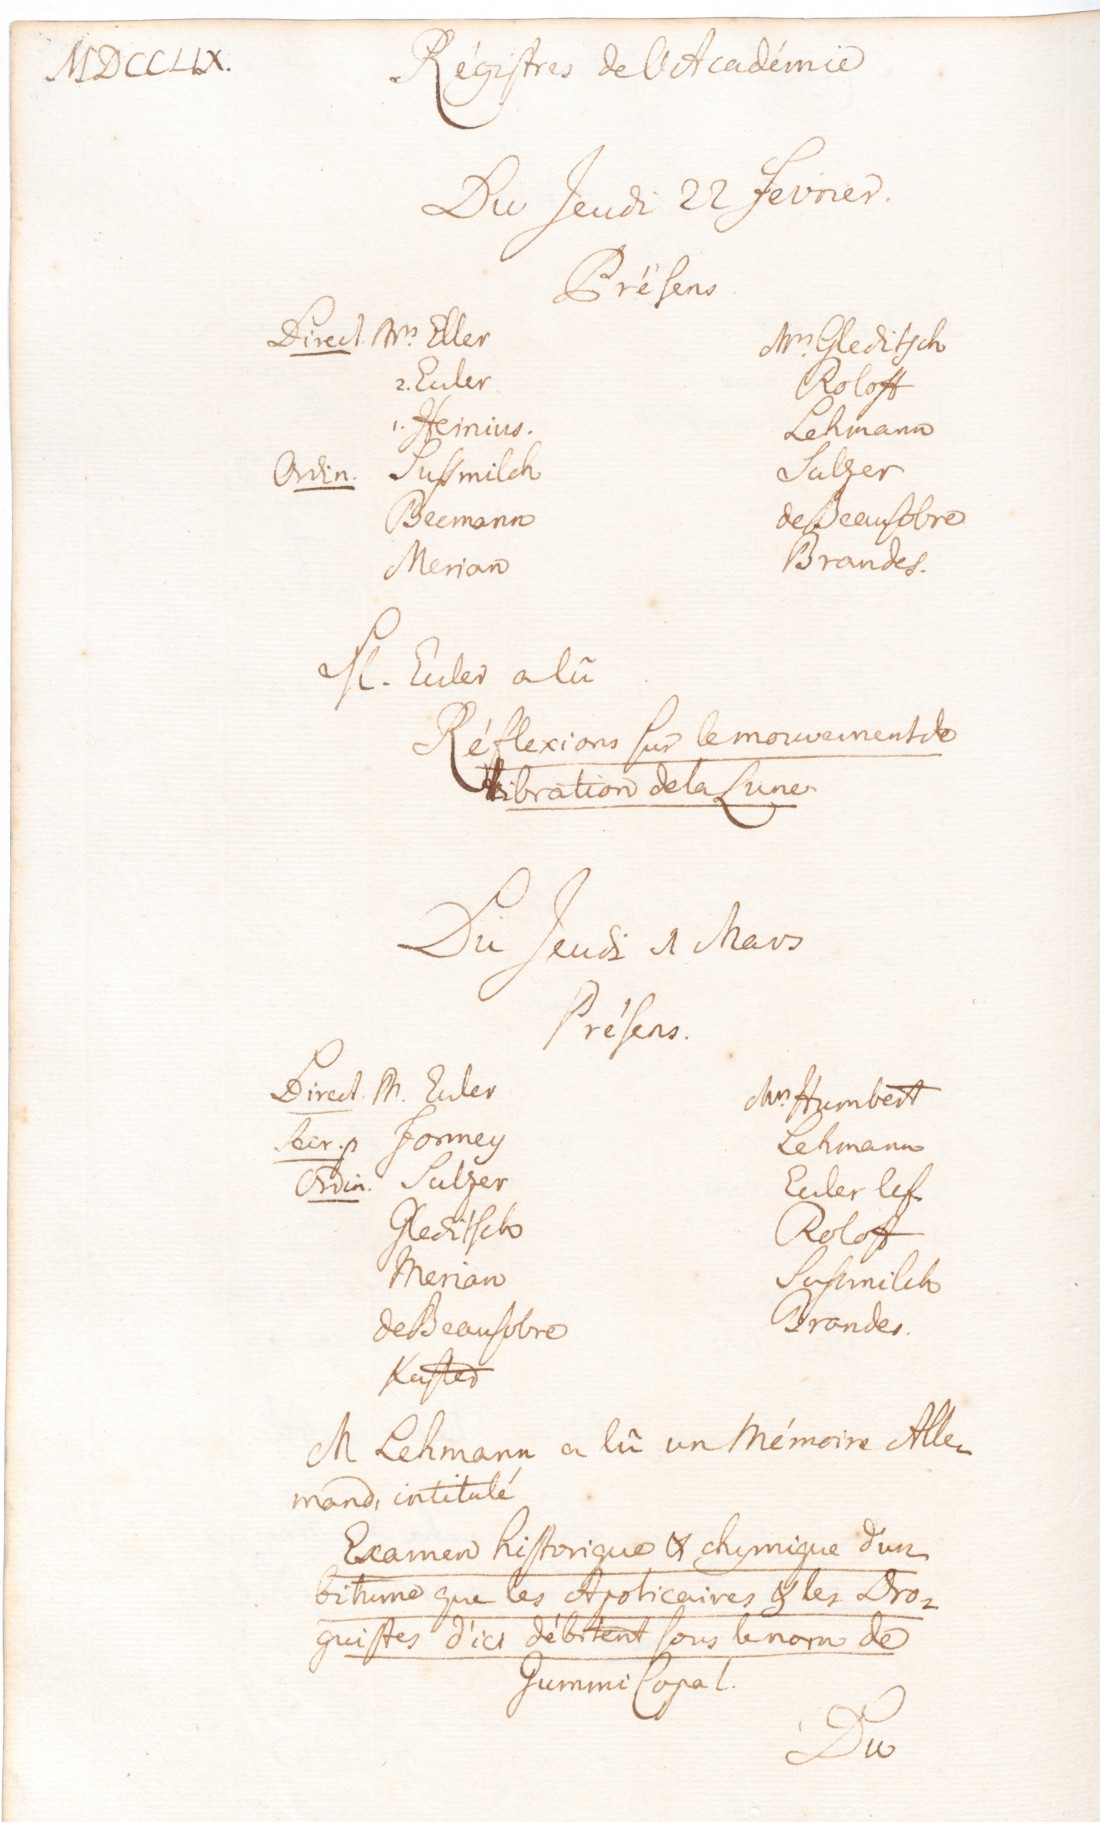 MDCCLIX. Régistres de l'Académie
Du Jeudi 22 Fevrier.
Présens
Direct. Mrs. Eller Mrs. Gleditsch
2. Euler Roloff
1. Heinius. Lehmann
Ordin. Sussmilch Sulzer
Becmann de Beausobre
Merian Brandes.
M. Euler a lû
Réflexions sur le mouvement de
libration de la Lune
Du Jeudi 1 Mars
Présens.
Direct. M. Euler Mrs Humbert
Secr. p Formey Lehmann
Ordin. Sulzer Euler le f.
Gleditsch Roloff
Merian Sussmilch
de Beausobre Brandes.
Kuster
M Lehmann a lû un Mémoire Alle-
mand, intitulé
Examen historique & chymique d'un
bitume que les Apoticaires & les Dro-
guistes d'ici débitent sous le nom de
Gummi Copal.
Du